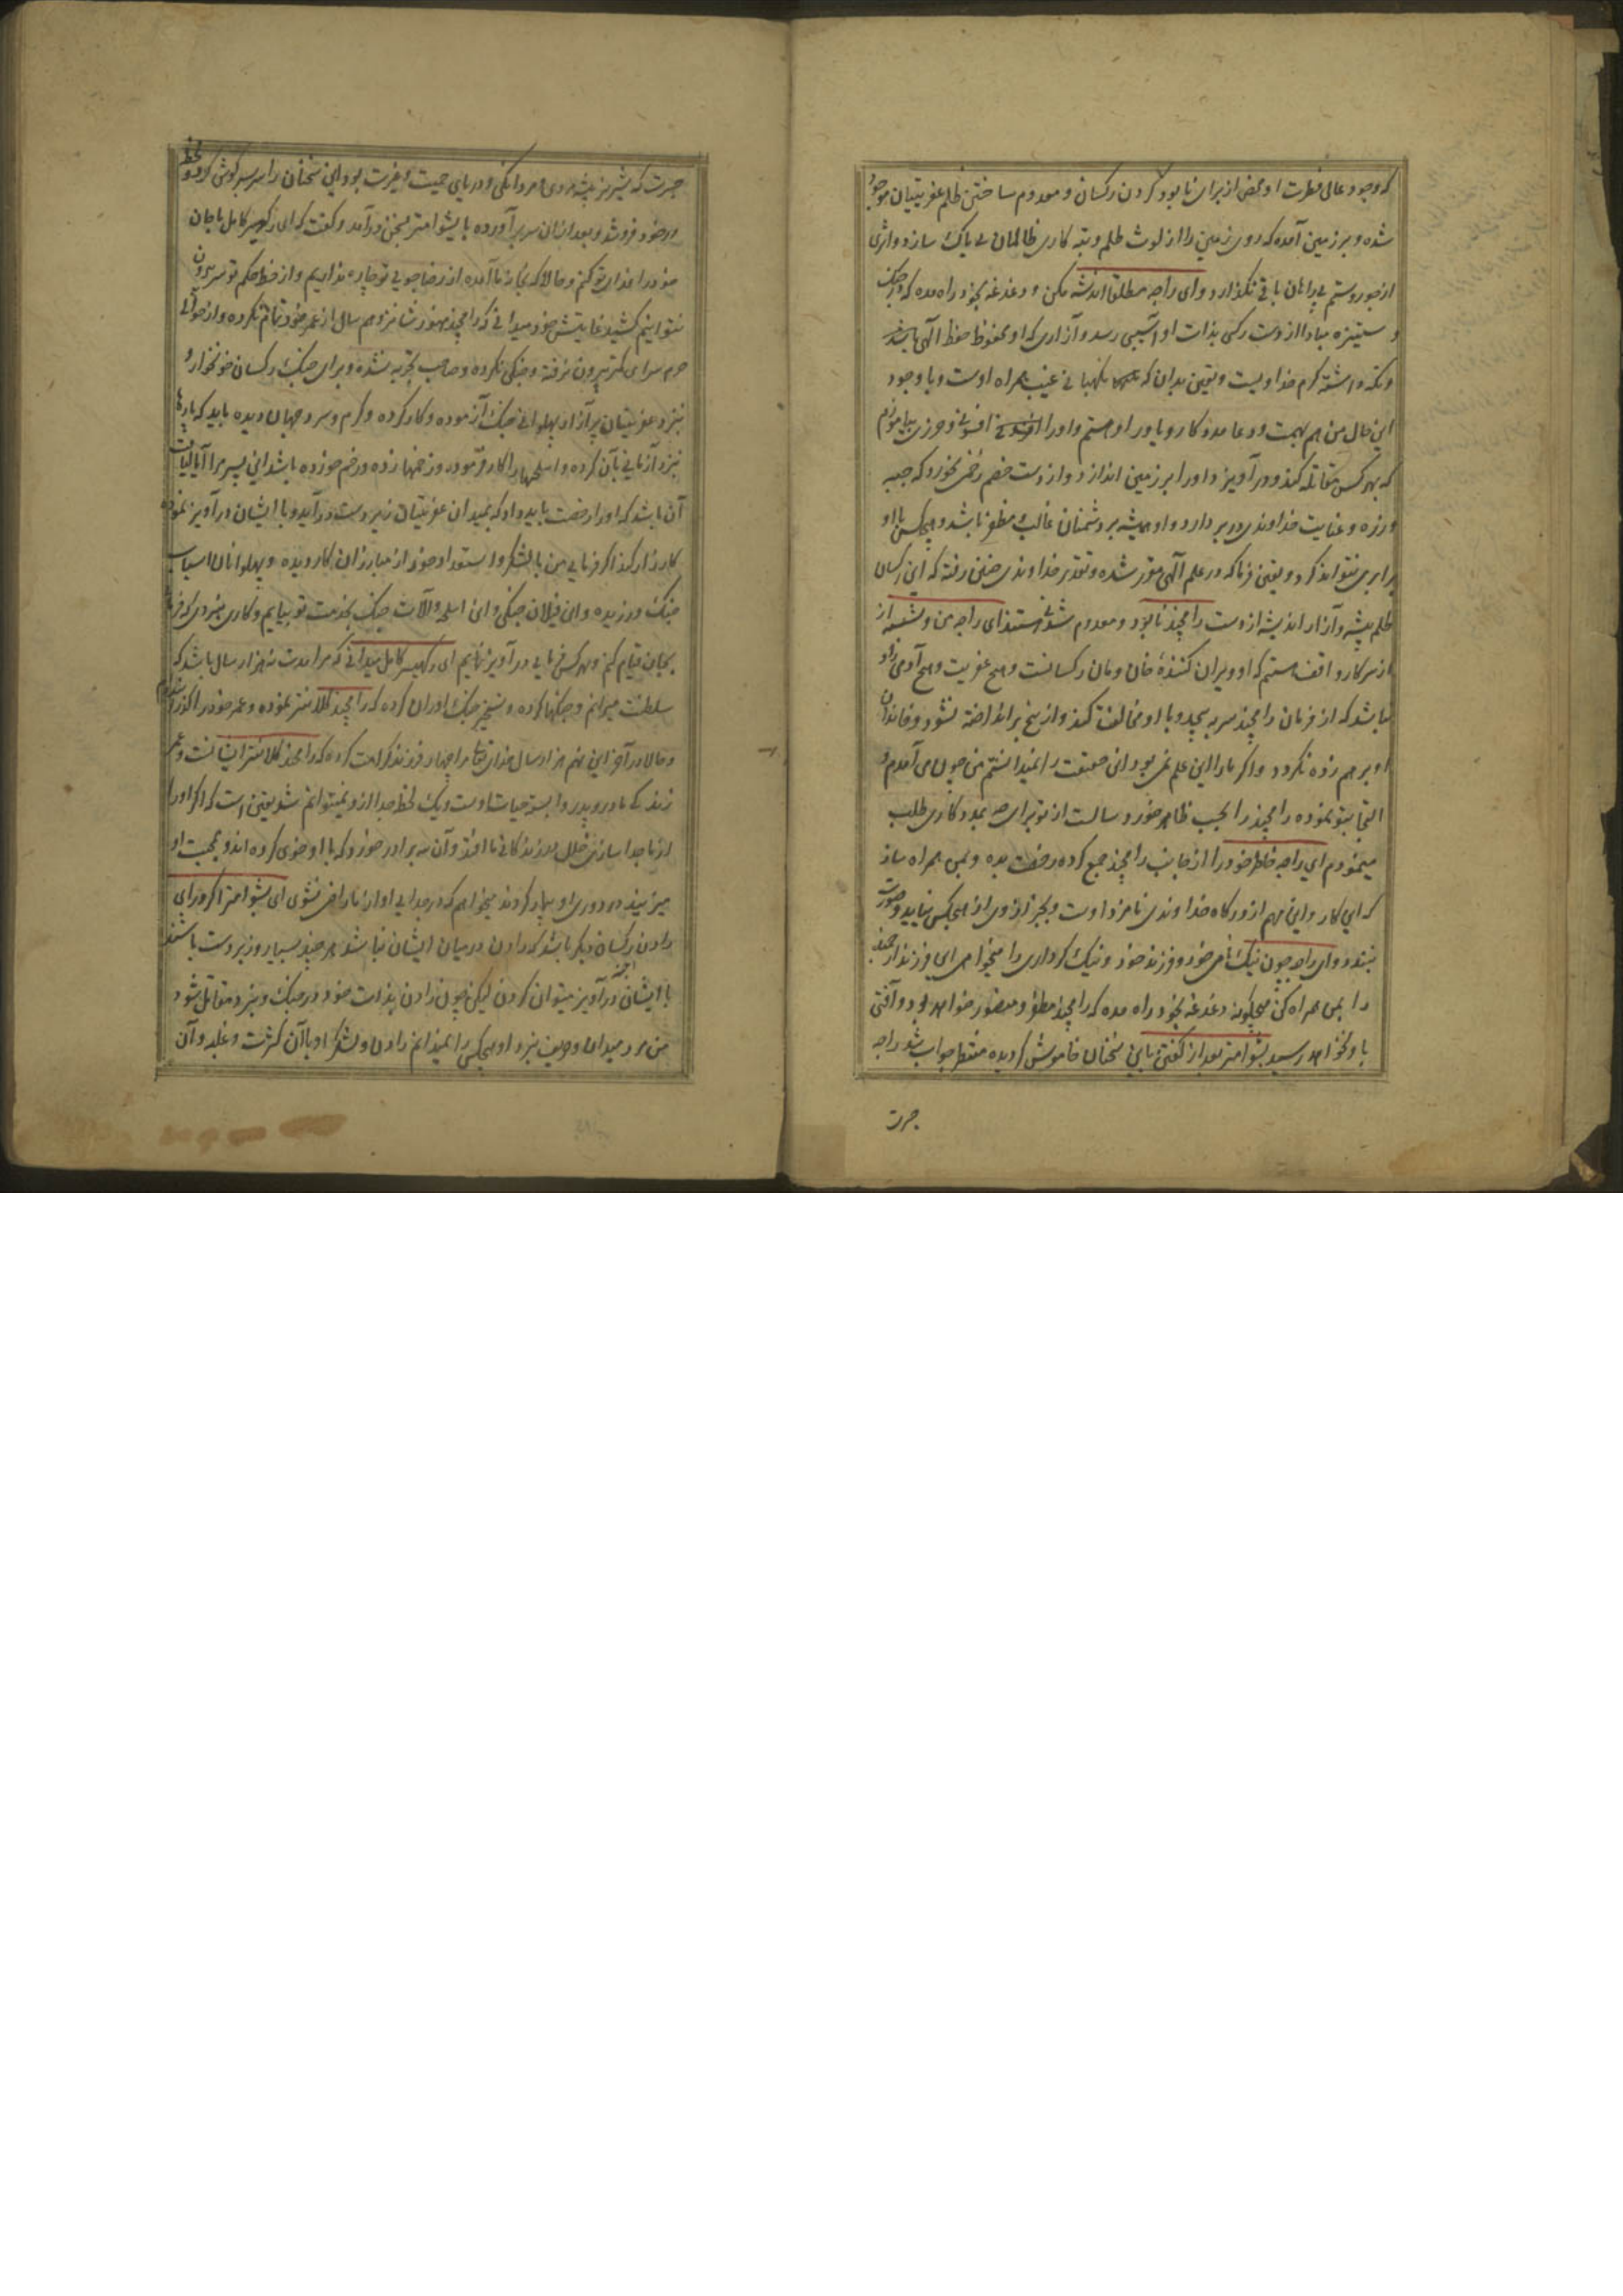 که وجود عالی فطرت او محض از برای نابود کردن رکسان و معدوم ساختن ظلم عفریتیان موجود
شده و بر زمین آمده که روی زمین را از لوث ظلم و تبه کاری ظالمان بی باک پاک سازد و اثری
از جور و ستم بی ایمان باقی نگذارد و ای راجه مطلقا اندیشه مکن و دغدغه بخود راه مده که در جنگ
و ستیزه مبادا از دست رکسی بذات او آسیبی رسد و آزاری که او محفوظ حفظ الهی باشد
و نگه داشته کرم خداوندیست و یقین بدان که نگهبانی غیب همراه اوست و با وجود
این حال من هم بهمت و دعا مددکار و یاور او هستم و او را افسونی و حرزی بیاموزم
که بهر کس مقاتله کند و در آویزد او را بر زمین اندازد و از دست خصم زخمی نخورد که جیبه
و زره و عنایت خداوندی در بر دارد و او همیشه بر دشمنان غالب و مظفر باشد و هیچکس با او
برابری نتواند کرد و یقین فرما که در علم الهی مقرر شده و تقدیر خداوندی چنین رفته که این رکسان
ظلم پیشه و آزار اندیشه از دست رامچند نابود و معدوم شدنی هستند ای راجه من و بششت از
از سر کار واقف هستیم که او ویران کننده خان و مان رکسانست و هیچ عفریت و هیچ آدمی زاد
نباشد که از فرمان رامچند سر به پیچد و با او مخالفت کند و از بیخ برانداخته نشود و خاندان
او بر هم زده نگردد و اگر ما را این علم نمی بود و این حقیقت را نمیدانستم من چون می آمدم و
التجا بتو نموده رامچند را بحسب ظاهر خورد سالست از تو برای مددکاری طلب
مینمودم ای راجه خاطر خود را از جانب رامچند جمع کرده رخصت بده و بمن همراه ساز
که این کار و این مهم از درگاه خداوندی نامزد اوست و بجز از وی از هیچکس نیاید و صورت
نبندد و ای راجه چون نیک نامی خود و فرزند خود و نیک کرداری را میخواهی ای فرزند ارجمند
را بمن همراه کن هیچگونه دغدغه بخود راه مده که رامچند مظفر و منصور خواهد بود و آفتی
باو نخواهد رسید بشوامتر بعد از گفتن این سخنان خاموش گردیده منتظر جواب شد راجه
جسرت
جسرت که شیر نر بیشه مردی و مردانگی و دریای حمیت و غیرت بود این سخنان را سر بسر گوش کرد و لحظه
در خود فرو شد و بعد از آن سر بر آورده با بشوامتر بسخن در آمد و گفت که ای رکهیسر کامل ما جان
خود را فدای تو کنم و حالا که بخانه ما آمده از رضا جویی تو چاره نداریم و از خط حکم تو سر بیرون
نتوانیم کشید غایتش خود میدانی که رامچند هنوز شانزدهم سال از عمر خود تمام نکرده و از حوالی
حرم سرای کمتر بیرون نرفته و جنگی نکرده و صاحب تجربه نشده و برای جنگ رکسان خونخوار و
نبرد عفریتیان پر آزار پهلوانی جنگ آزموده و کار کرده و گرم و سرد جهان دیده باید که بارها
نبرد آزمایی بآن کرده و اسلحهها را کار فرموده و زخمها زده و زخم خورده باشد این پسر مرا آیا لیاقت
آن باشد که او را رخصت باید داد که بمیدان عفریتیان زبردست در آید و با ایشان در آویز نموده
کارزار کند اگر فرمایی من با لشکر و استعداد خود از مبارزان کار دیده و پهلوانان اسباب
جنگ ورزیده و این فیلان جنگی و این اسلحه و آلات جنگ بخدمت تو بیایم و کاری مردی که فرمایی
بجان قیام کنم و بهر کس فرمایی در آویز نمایم ای رکهیسر کامل میدانی که مرا مدت نه هزار سال باشد که
سلطنت میرانم و جنگها کرده و تسخیر
و حالا در آخر این نهم هزار سال خدای تعالی مرا چهار فرزند کرامت کرده که رامچند کلانتر ایشانست و عمر
زندگی مادر و پدر وابسته حیات اوست و یک لحظه جدا ازو نمیتوانم شد یقین است که اگر او را
از ما جدا سازی خلل در زندگانی ما افتد و آن سه برادر خورد که با او خوی کرده اند و بمحبت او
میزیند در دوری او بیمار گردند میخواهم که در جدایی او از ما راضی نشوی ای بشوامتر اگر ورای
راون رکسان دیگر باشد که راون در میان ایشان نباشد هر چند بسیار و زبردست باشند
با ایشان در آویز میتوان کردن لیکن چون راون بذات خود در جنگ و نبرد مقابل شود
من مرد میدان و حریف نبرد او هیچکس را نمیدانم راون و لشکر او با آن کثرت و غلبه و آن